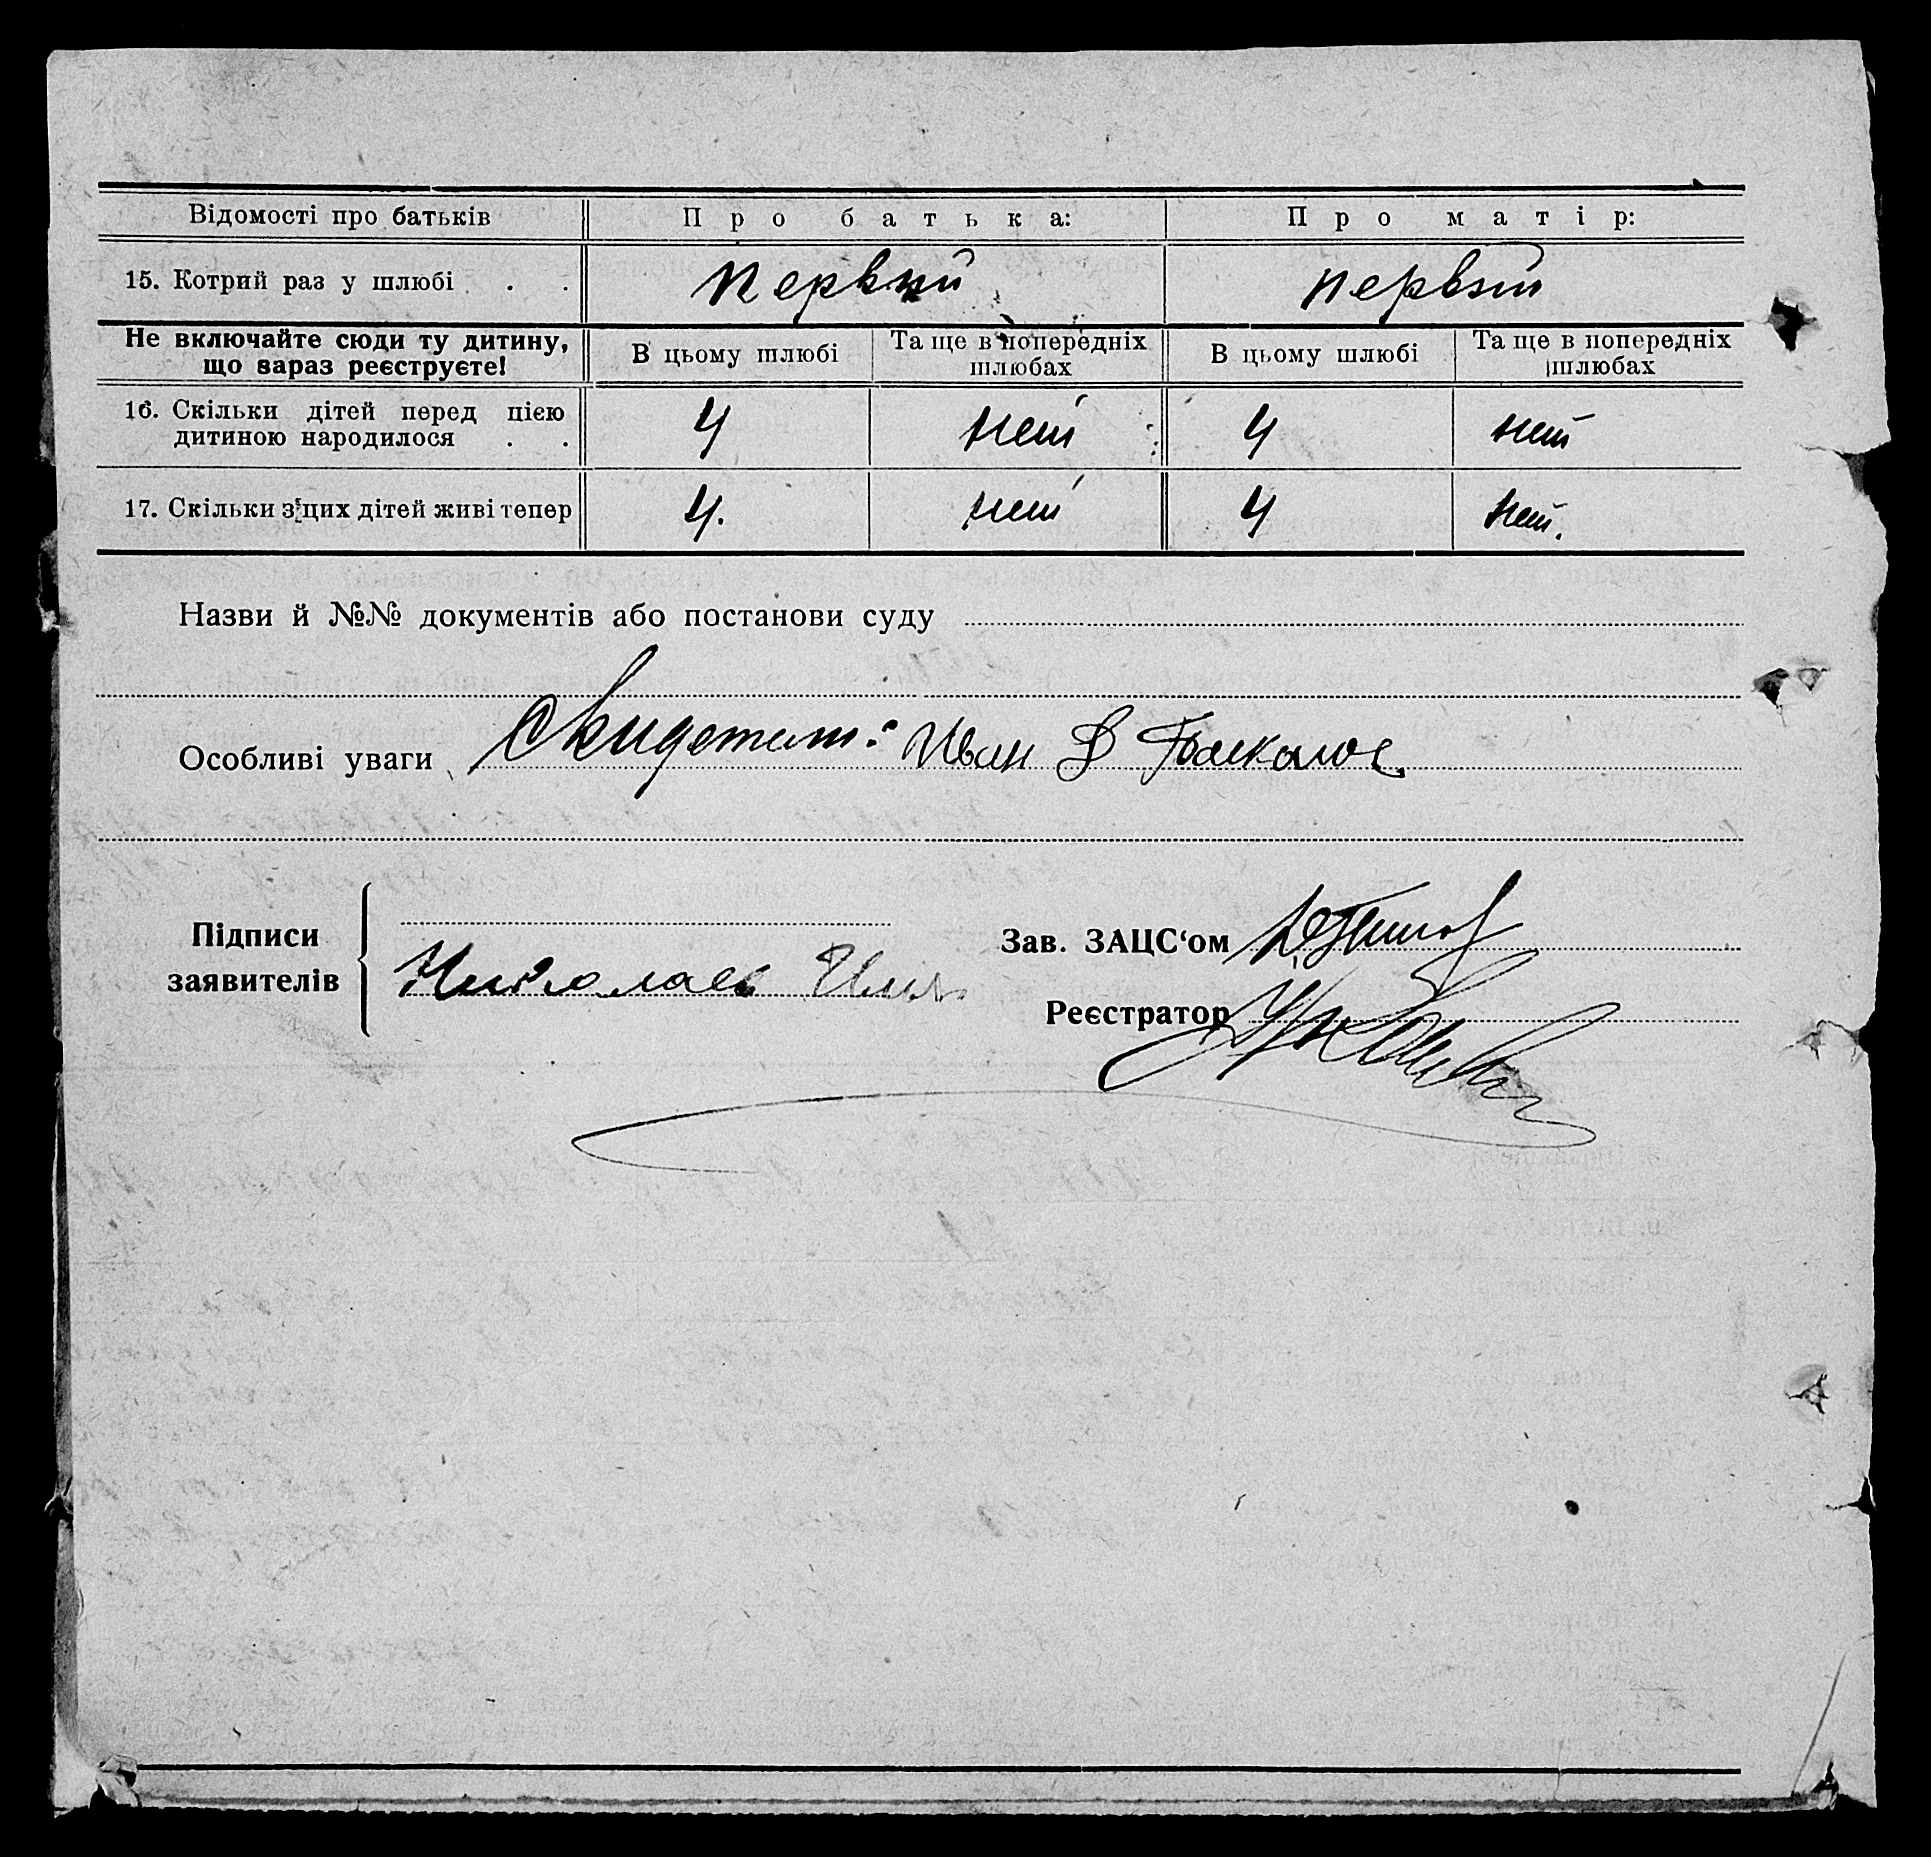 Відомості про батьків Про батька: Про матір:
15. Котрий раз у шлюбі . . первий первый
Не включайте сюди ту дитину, що зараз реєструєте!
В цьому шлюбі Та ще в попередніх шлюбах В цьому шлюбі Та ще в попередніх шлюбах
16. Скільки дітей перед цією
дитиною народилося . . 4 нет 4 нет
17. Скільки з цих дітей живі тепер 4. нет 4 нет.
Назви й №№ документів або постанови суду
Особливі уваги Свидетели: Иван
Підписи
заявителів
Николаев
Зав. ЗАЦС‘ом
Реєстратор